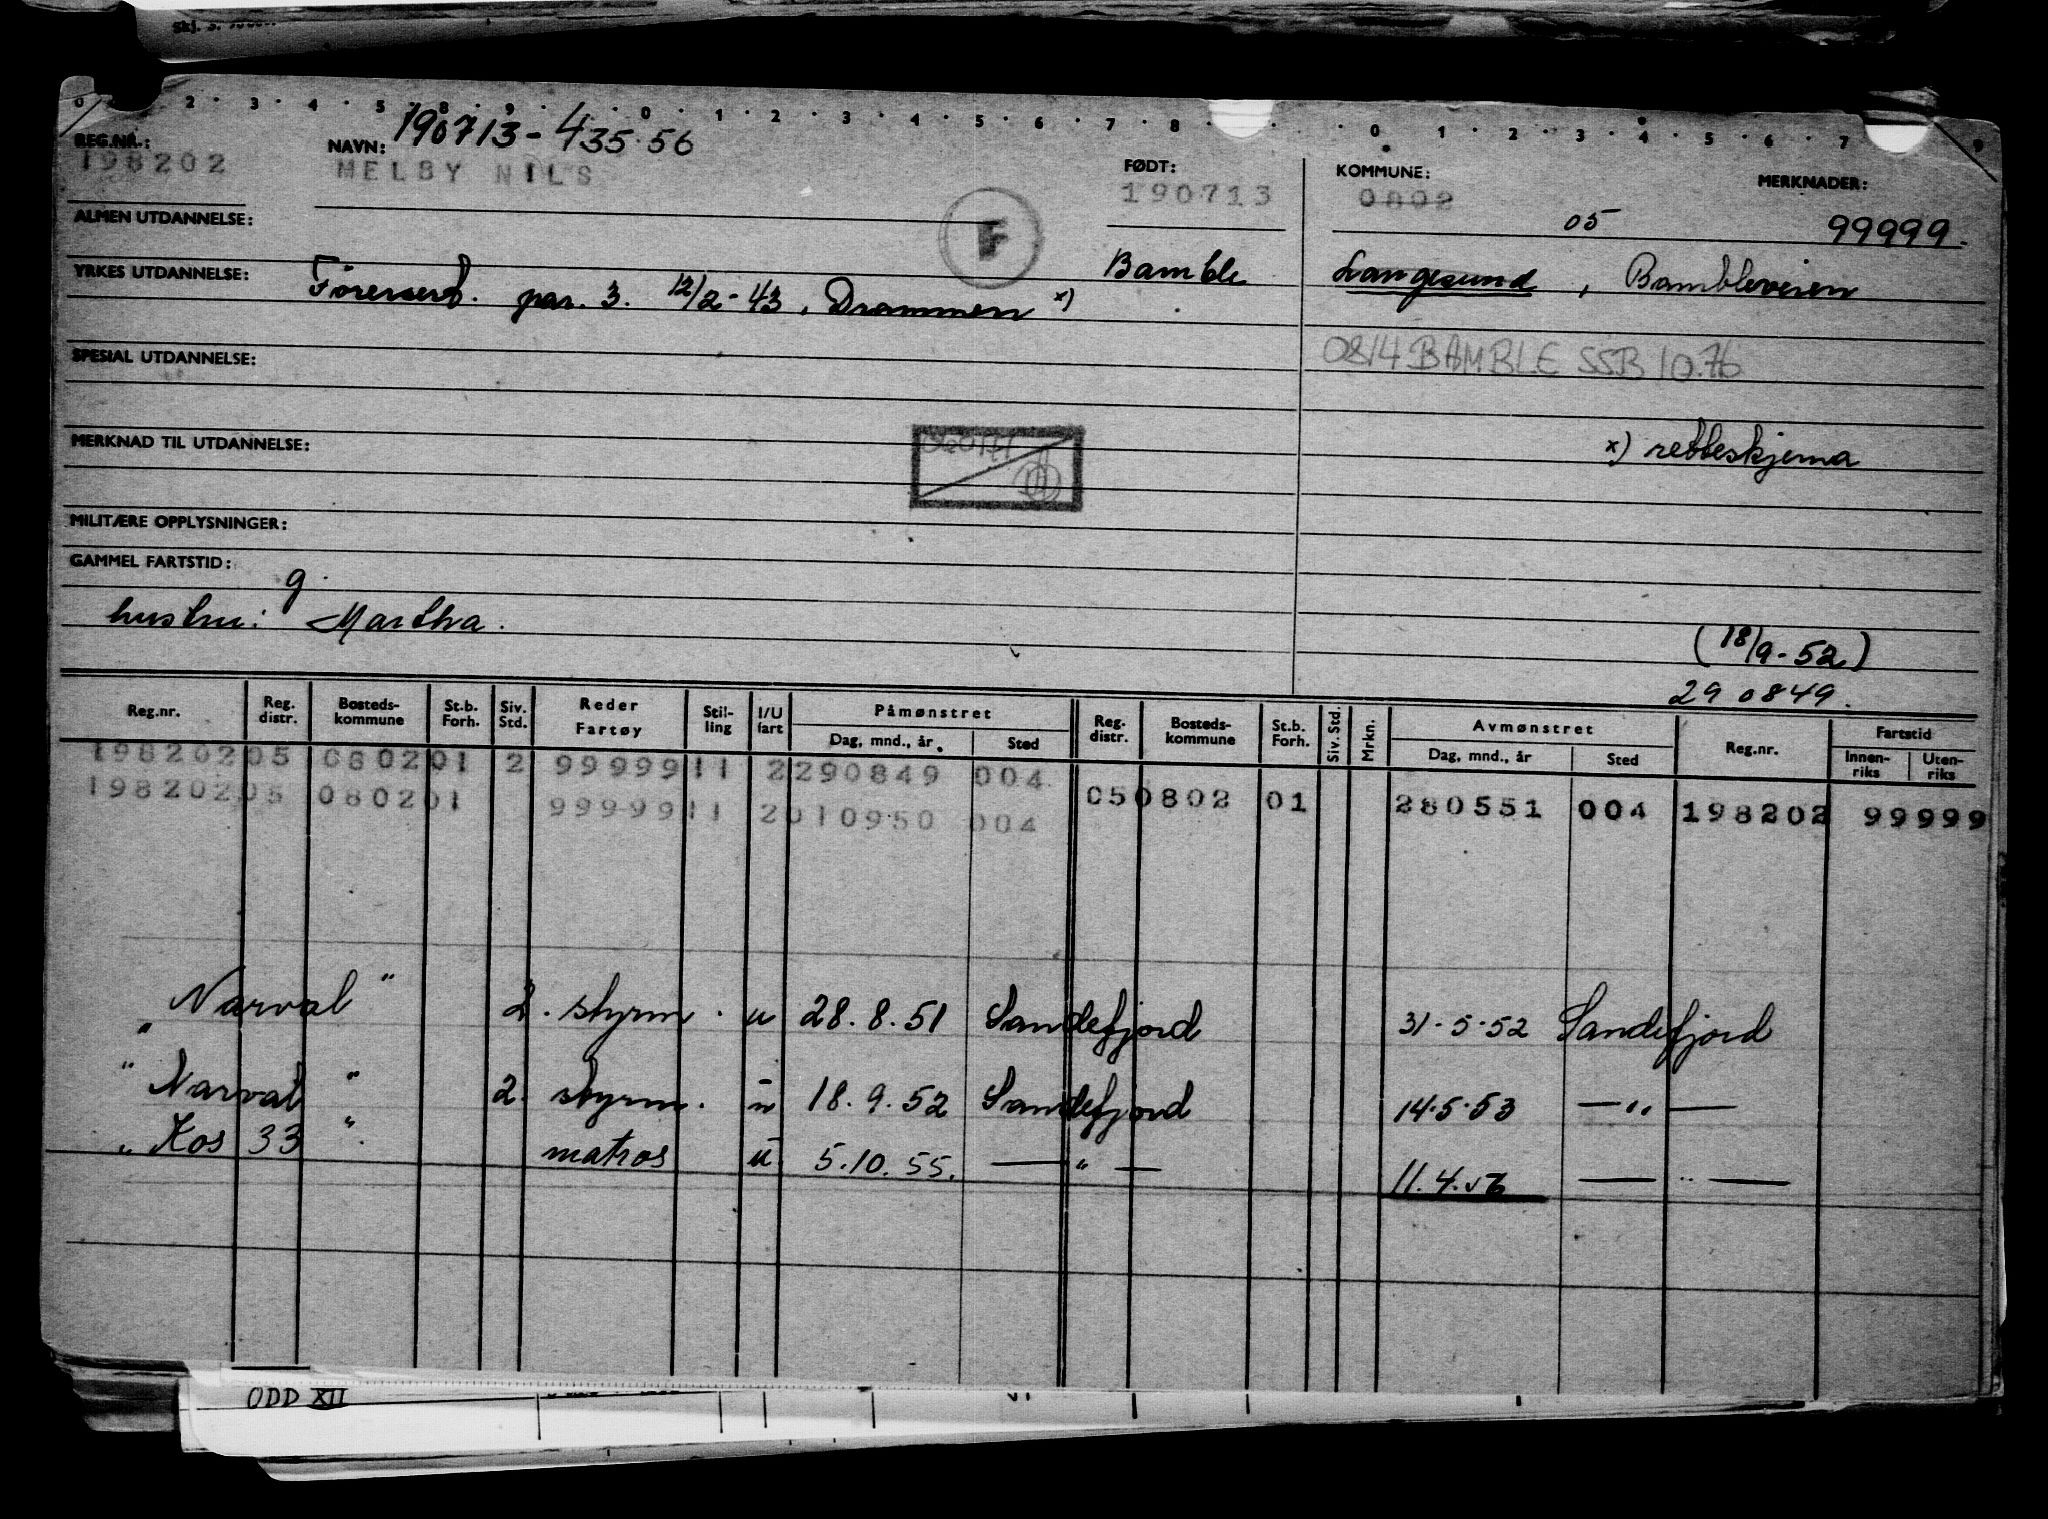 Skj. S.
0 2 3 4 5 8 9 0 1 2 3 4 5 6 7 8 0 1 2 3 4 5 6 7 9
REG.NR.: NAVN: 190713-43556 FØDT: KOMMUNE: MERKNADER:
198202 MELBY NILS 190713 0802 05 99999.
ALMEN UTDANNELSE: F
YRKES UTDANNELSE: Førersert. par. 3. 12/2-43, Drammen x) Bamble Langesund, Bambleveien
SPESIAL UTDANNELSE: 0814 BAMBLE SSB 10.76
MERKNAD TIL UTDANNELSE: x) rebbeskjema
MILITÆRE OPPLYSNINGER:
GAMMEL FARTSTID:
g.
hustru: Martha. (18/9-52)
290849.
Reg.nr. Reg. distr. Bosteds-kommune St.b. Forh. Siv. Std. Reder Fartøy Stil-ling I/U fart Påmønstret Dag, mnd., år Sted Reg. distr. Bosteds-kommune St.b. Forh. Siv. Std. Mrkn. Avmønstret Dag, mnd., år Sted Reg.nr. Fartstid Innen-riks Uten-riks
198202 05 0802 01 2 99999 11 2 290849 004
198202 05 0802 01 99999 11 2 010950 004 05 0802 01 280551 004 198202 99999
"Narval" 2. styrm. u 28.8.51 Sandefjord 31-5-52 Sandefjord
"Narval" 2. styrm. u 18.9.52 Sandefjord 14.5.53 — " —
"Kos 33" matros u 5.10.55. — " — 11.4.56 — " —
ODD XII